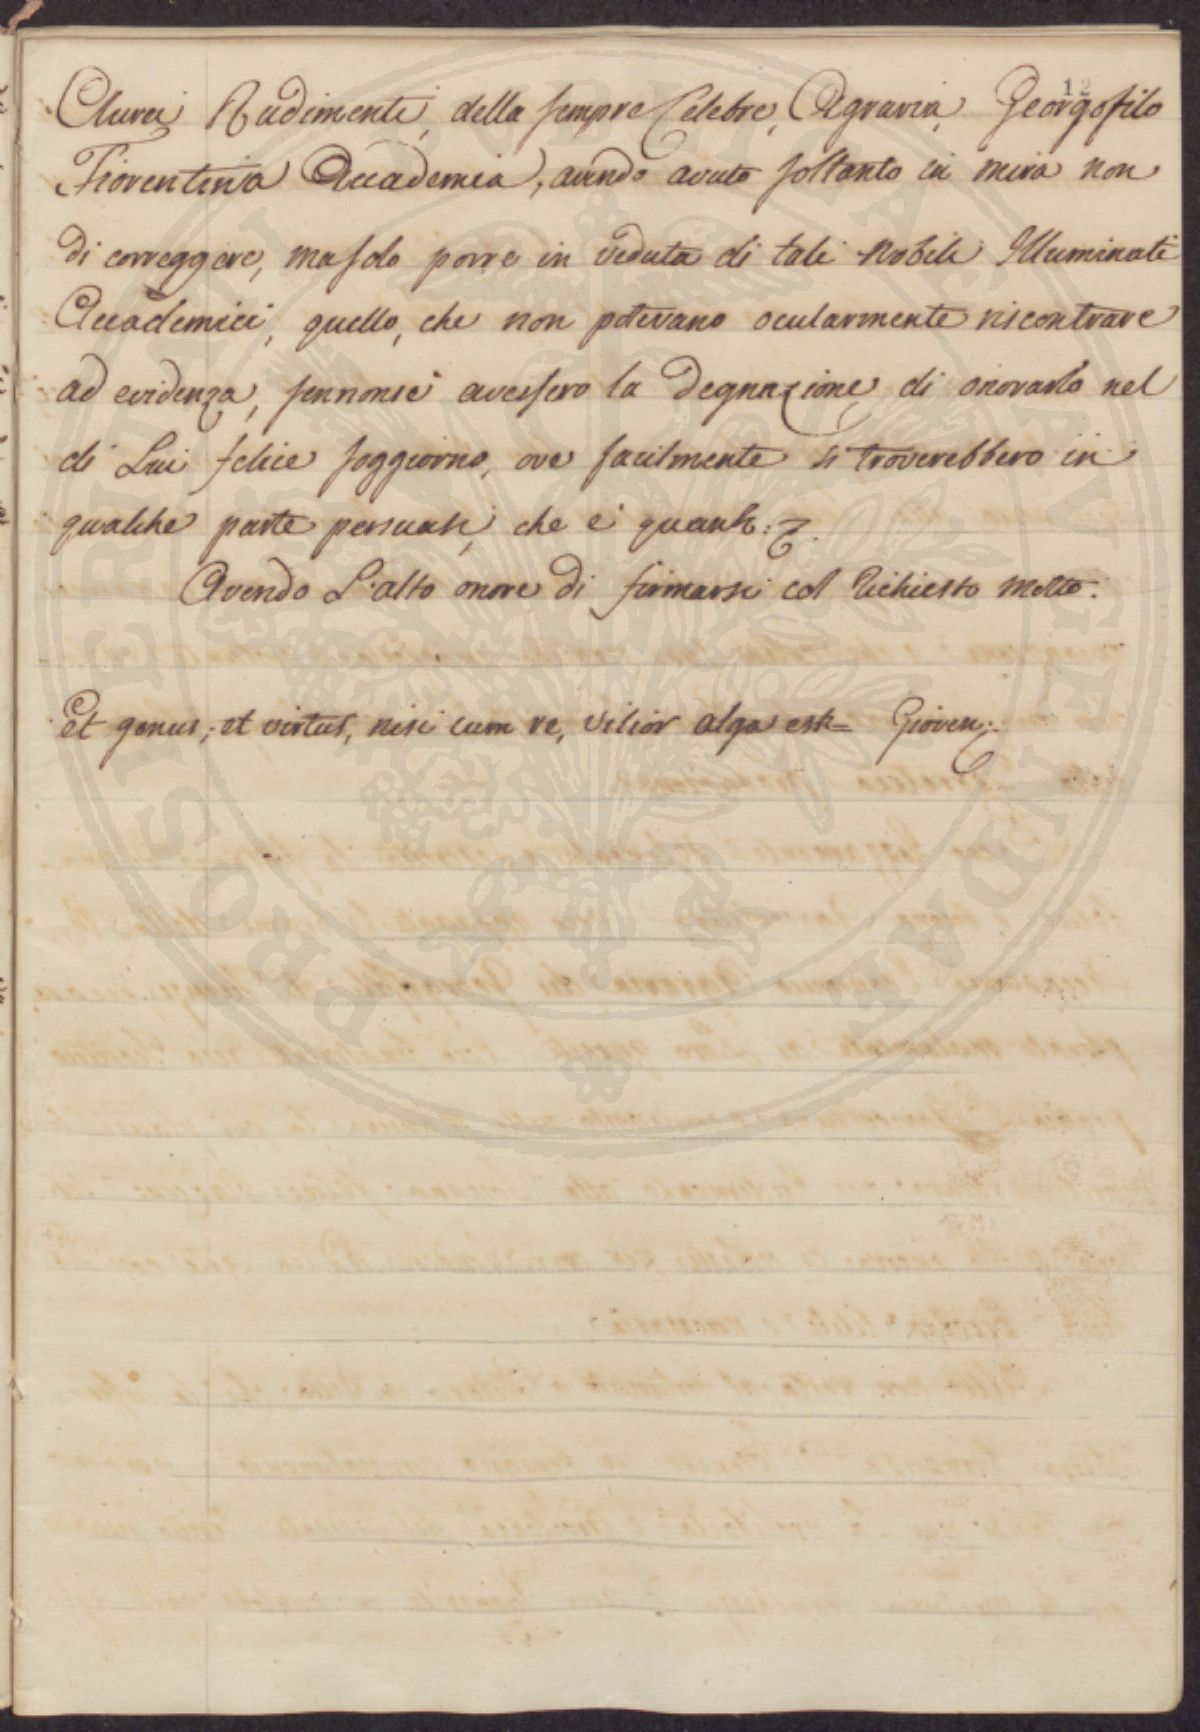 12
Aurei Rudimenti, della sempre Celebre, Agraria, Georgofilo
Fiorentina Accademia, avendo avuto soltanto in mira non
di correggere, ma solo porre in veduta di tali Nobili Illuminati
Accademici, quello, che non potevano ocularmente riscontrare
ad evidenza, sennonsè avessero la Degnazione di onorarlo nel
di Lui felice soggiorno, ove facilmente si troverebbero in
qualche parte persuasi, che è quanto:
Avendo L'alto onore di firmarsi col Richiesto Motto.
Et genus, et virtus, nisi cum re, vilior alga est= Gioven:
PROSPERITATI PUBLICAE AUGENDAE